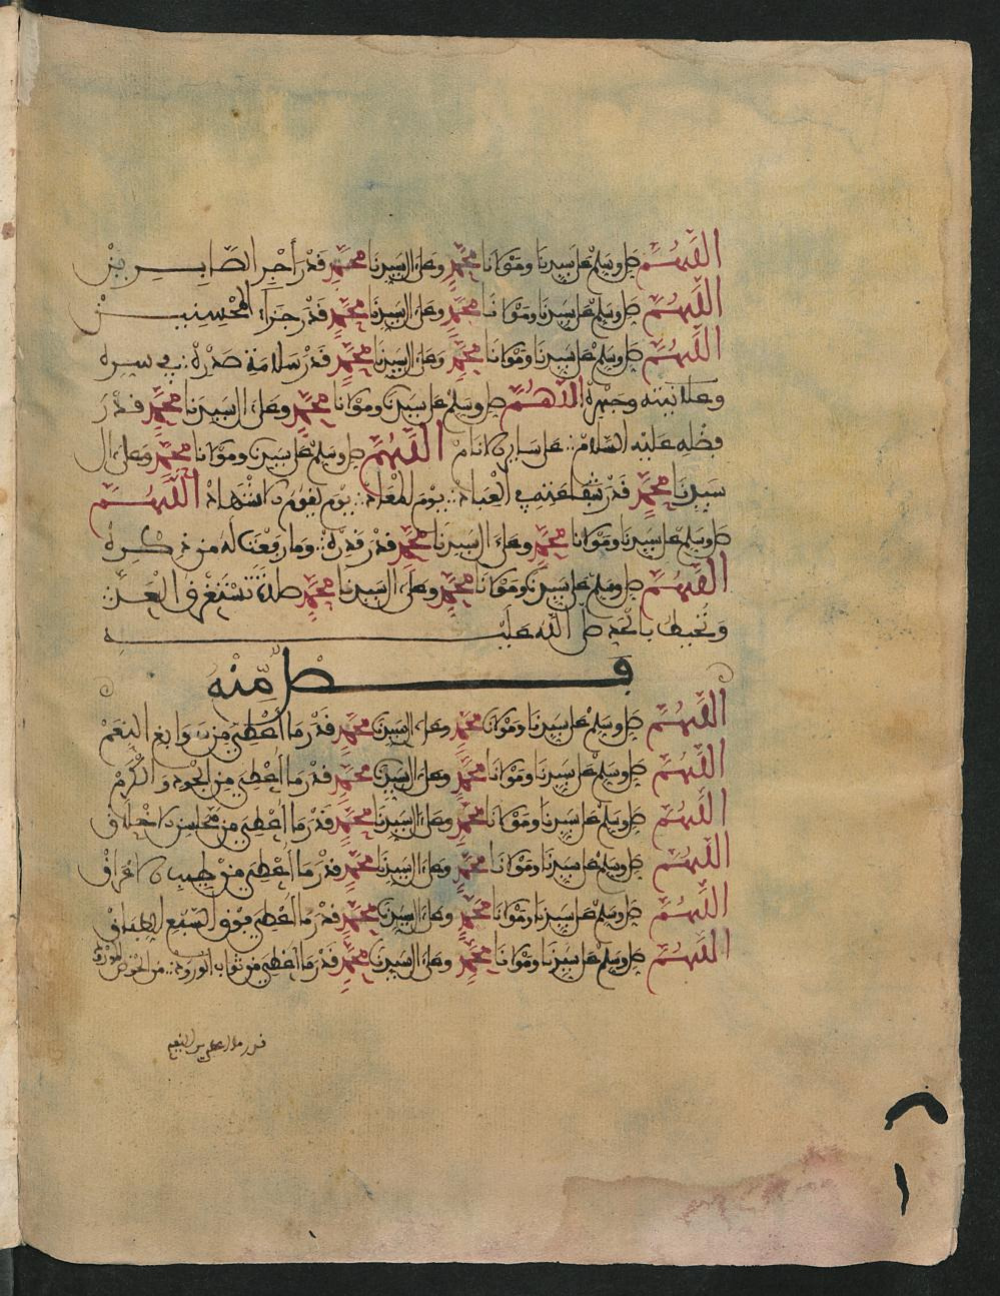 اللهُمَّ صل وسلم على سيدنا ومولانا محمد وعلى ال سيدنا محمد قدر أجر الصابرين
اللهُمَّ صل وسلم على سيدنا ومولانا محمد وعلى ال سيدنا محمد قدر جزاء المحسنين
اللهُمَّ صل وسلم على سيدنا ومولانا محمد وعلى ال سيدنا محمد قدر سلامة صدره في سره
وعلانيته وجهره اللهُمَّ صل وسلم على سيدنا ومولانا محمد وعلى ال سيدنا محمد قدر
فضله عليه السلام على ساير الانام اللهُمَّ صل وسلم على سيدنا ومولانا محمد وعلى ال
سيدنا محمد قدر شفاعته في العباد يوم المعاد يوم يقوم الاشهاد اللهُمَّ
صل وسلم على سيدنا ومولانا محمد وعلى ال سيدنا محمد قدر قدره وما رفعنا له من ذكره
اللهُمَّ صل وسلم على سيدنا ومولانا محمد وعلى ال سيدنا محمد صلاة تستغرق العد
وتحيط بالحد صل الله عليه
فصل مِّنْهُ
اللهُمَّ صل وسلم على سيدنا ومولانا محمد وعلى ال سيدنا محمد قدر ما أعطي من سوابغ النعم
اللهُمَّ صل وسلم على سيدنا ومولانا محمد وعلى ال سيدنا محمد قدر ما أعطي من الجود والكرم
اللهُمَّ صل وسلم على سيدنا ومولانا محمد وعلى ال سيدنا محمد قدر ما أعطي من محاسن الاخلاق
اللهُمَّ صل وسلم على سيدنا ومولانا محمد وعلى ال سيدنا محمد قدر ما أعطي من طيب الاعراق
اللهُمَّ صل وسلم على سيدنا ومولانا محمد وعلى ال سيدنا محمد قدر ما أعطي فوق السبع الطباق
اللهُمَّ صل وسلم على سيدنا ومولانا محمد وعلى ال سيدنا محمد قدر ما أعطي من ثواب الورود من الحوض المورود
قدر ما اعطي من النعم